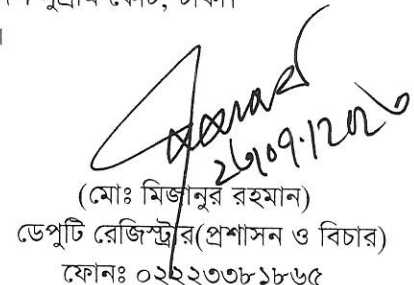 সুপ্রীম কোর্ট, ঢাকা।
(মোঃ মিজানুর রহমান)
ডেপুটি রেজিস্ট্রার(প্রশাসন ও বিচার)
ফোনঃ ০২২২৩৩৮১৮৬৫